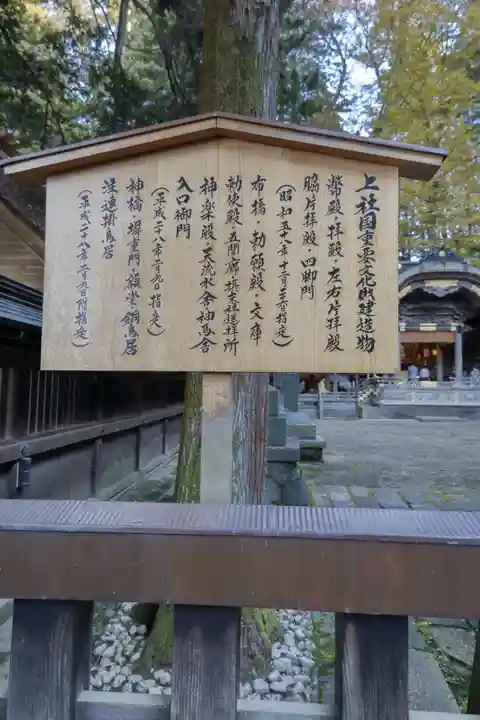 上社国重要文化財建造物
幣殿・拝殿・左右片拝殿
脇片拝殿・四脚門
(昭和五十八年十二月二六日指定)
布橋・勅願殿・文庫
勅使殿・五間廊・摂末社遥拝所
神楽殿・天流水舎・神馬舎
入口御門
(平成二十八年二月九日指定)
神橋・塀重門・額堂・銅鳥居
注連掛鳥居
(平成二十八年二月九日附指定)